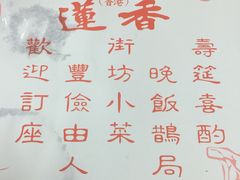 (香港)
蓮香
壽筵喜酌
晚飯鵲局
街坊小菜
豐儉由人
歡迎訂座